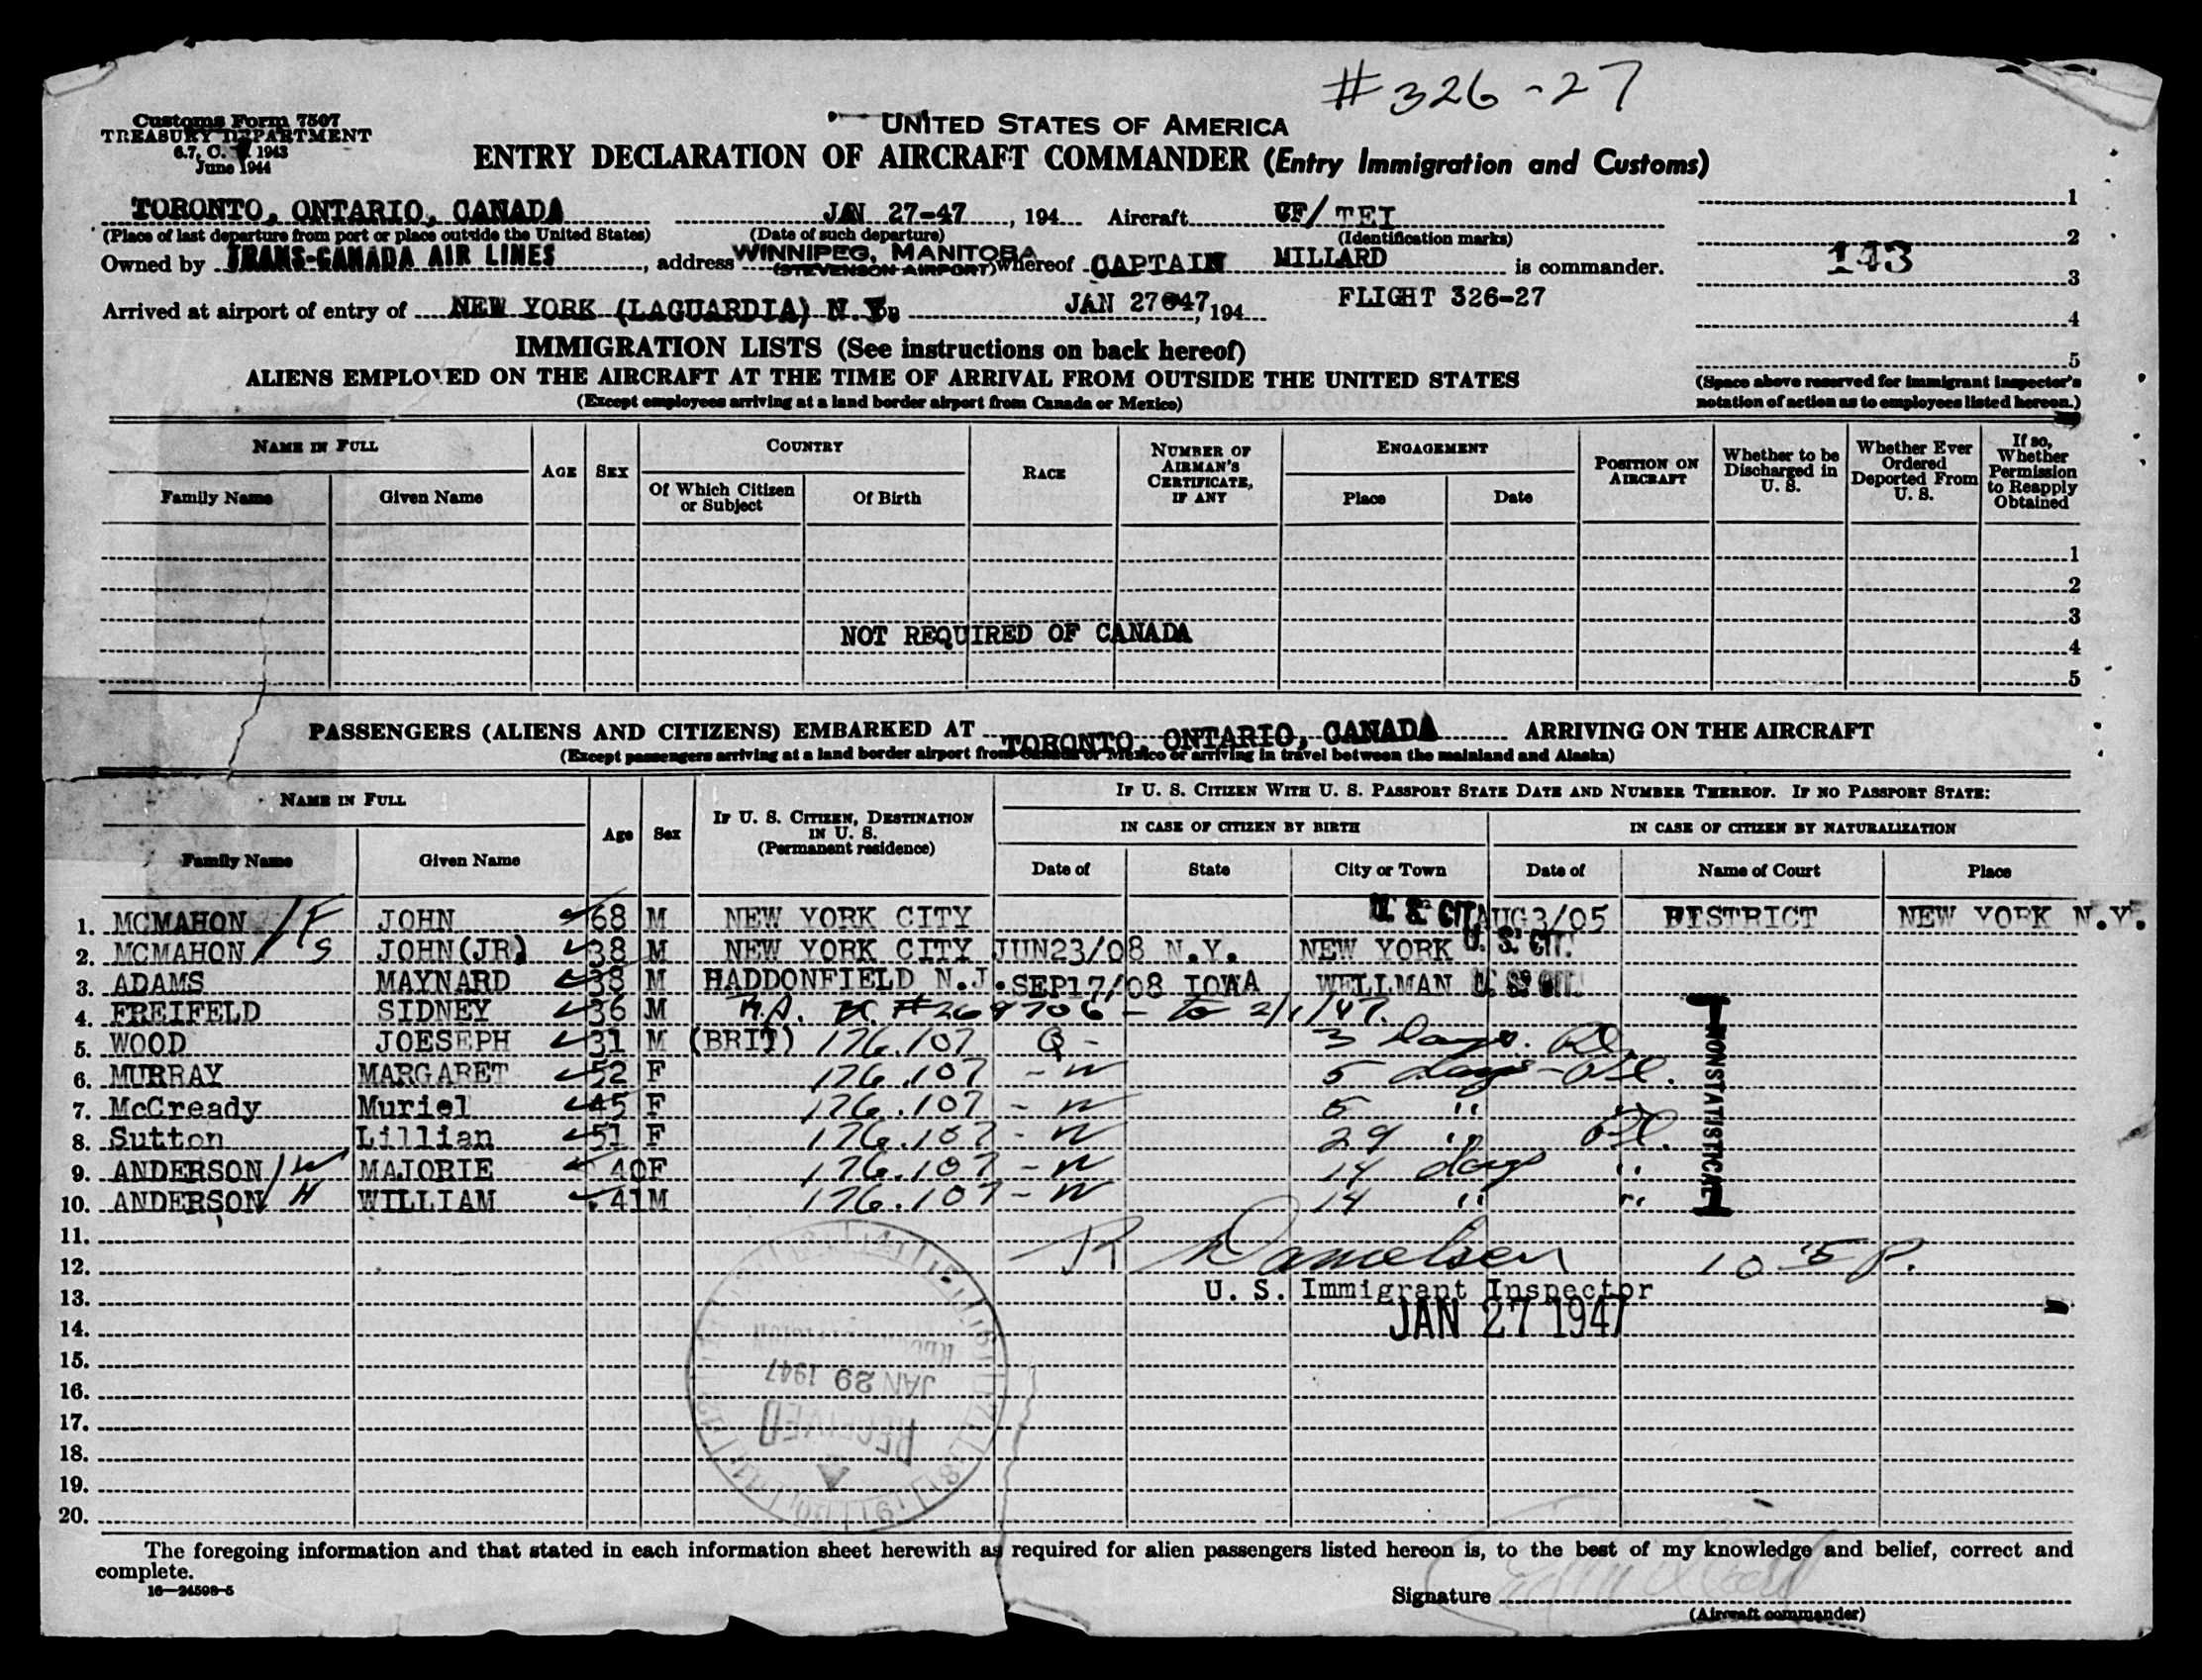 #326-27
Customs Form 7507
TREASURY DEPARTMENT
June 1944
UNITED STATES OF AMERICA
ENTRY DECLARATION OF AIRCRAFT COMMANDER (Entry Immigration and Customs)
TORONTO, ONTARIO, CANADA JAN 27-47, 194 Aircraft CF/ TEI 1
(Place of last departure from port or place outside the United States) (Date of such departure) (Identification marks) 2
Owned by TRANS-CANADA AIR LINES, address WINNIPEG, MANITOBA (STEVENSON AIRPORT) whereof CAPTAIN MILLARD is commander. 143
3
Arrived at airport of entry of NEW YORK (LAGUARDIA) N.Y. JAN 27 47, 194 FLIGHT 326-27
4
IMMIGRATION LISTS (See instructions on back hereof) 5
ALIENS EMPLOYED ON THE AIRCRAFT AT THE TIME OF ARRIVAL FROM OUTSIDE THE UNITED STATES
(Except employees arriving at a land border airport from Canada or Mexico)
(Space above reserved for immigrant inspector's
notation of action as to employees listed hereon.)
NAME IN FULL AGE SEX COUNTRY RACE NUMBER OF AIRMAN'S CERTIFICATE, IF ANY ENGAGEMENT POSITION ON AIRCRAFT Whether to be Discharged in U. S. Whether Ever Ordered Deported From U. S. If so, Whether Permission to Reapply Obtained
Family Name Given Name Of Which Citizen or Subject Of Birth Place Date
1
2
3
NOT REQUIRED OF CANADA
4
5
PASSENGERS (ALIENS AND CITIZENS) EMBARKED AT TORONTO, ONTARIO, CANADA ARRIVING ON THE AIRCRAFT
(Except passengers arriving at a land border airport from Canada or Mexico or arriving in travel between the mainland and Alaska)
NAME IN FULL Age Sex IF U. S. CITIZEN, DESTINATION IN U. S. (Permanent residence) IF U. S. CITIZEN WITH U. S. PASSPORT STATE DATE AND NUMBER THEREOF. IF NO PASSPORT STATE:
IN CASE OF CITIZEN BY BIRTH IN CASE OF CITIZEN BY NATURALIZATION
Family Name Given Name Date of State City or Town Date of Name of Court Place
1. MCMAHON / F JOHN 68 M NEW YORK CITY U. S. CIT. AUG3/05 DISTRICT NEW YORK N.Y.
2. MCMAHON / S JOHN(JR) 38 M NEW YORK CITY JUN23/08 N.Y. NEW YORK U. S. CIT.
3. ADAMS MAYNARD 38 M HADDONFIELD N.J. SEP17/08 IOWA WELLMAN U. S. CIT.
4. FREIFELD SIDNEY 36 M - to 2/1/47.
5. WOOD JOESEPH 31 M (BRIT) 176.107 Q - 3 days.
6. MURRAY MARGARET 52 F 176.107 - W 5 days -
7. McCready Muriel 45 F 176.107 - W 5 "
8. Sutton Lillian 51 F 176.107 - W 29 "
9. ANDERSON / W MAJORIE 40F 176.107 - W 14 days "
10. ANDERSON / H WILLIAM 41M 176.107 - W 14 " "
NONSTATISTICAL
11.
R Danielsen 10 5 P.
12.
U. S. Immigrant Inspector
13.
JAN 27 1947
14.
15.
JAN 29 1947
16.
17.
RECEIVED
18.
19.
20.
The foregoing information and that stated in each information sheet herewith as required for alien passengers listed hereon is, to the best of my knowledge and belief, correct and
complete.
16—24598-5
Signature
(Aircraft commander)